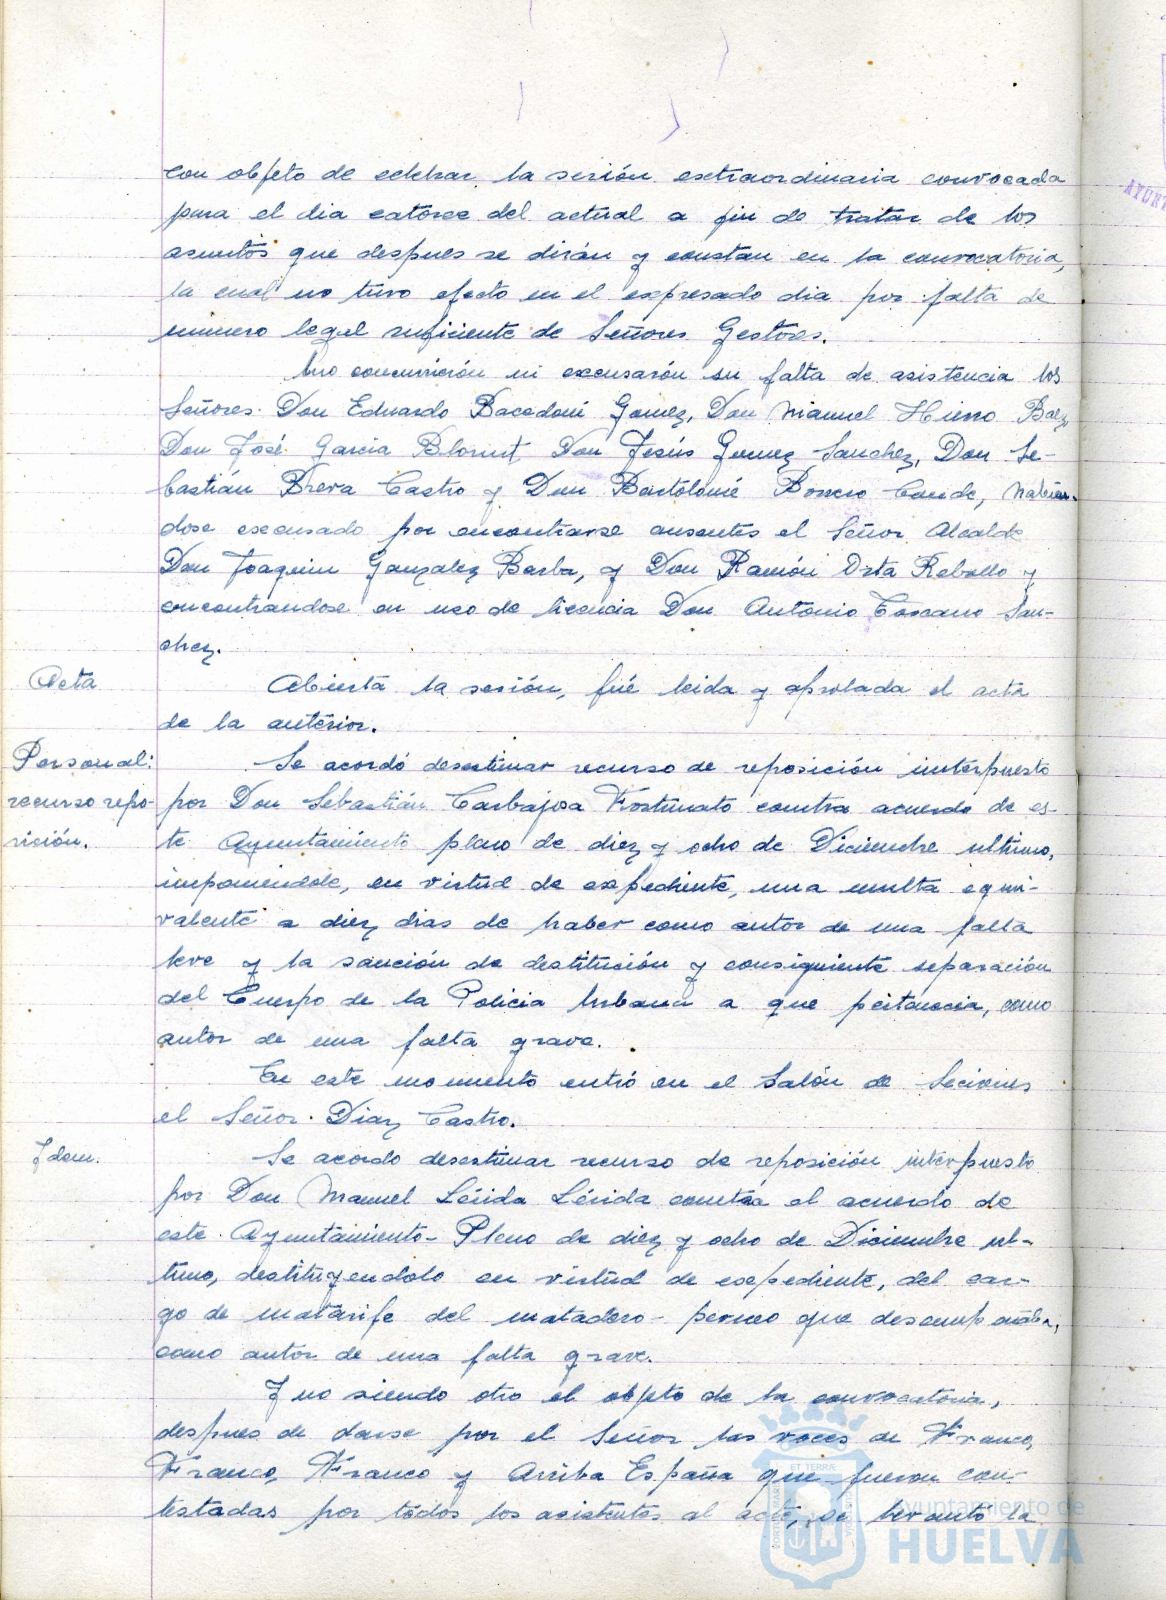 con objeto de celebrar la sesión extraordinaria convocada
para el dia catorce del actual a fin de tratar de los
asuntos que despues se dirán y constan en la convocatoria,
la cual no tuvo efecto en el expresado dia por falta de
numero legal suficiente de Señores Gestores.
No concurrición ni excusarón su falta de asistencia los
Señores Don Eduardo Bacedoni Gomez, Don Manuel Hierro Baez
Don José Garcia Don Jesús Gomez Sanchez, Don Se-
bastián Breva Castro y Don Bartolomé Borrero Conde, habien-
dose excusado por encontrarse ausentes el Señor Alcalde
Don Joaquin Gonzalez Barba, y Don Ramón Orta Rebollo y
encontrandose en uso de licencia Don Antonio Toscano San-
chez.
Acta
Abierta la sesión, fué leida y aprobada el acta
de la anterior.
Personal:
recurso repo-
sición.
Se acordó desestimar recurso de reposición interpuesto
por Don Sebastián Carbajosa Fortunato contra acuerdo de es-
te Ayuntamiento pleno de diez y ocho de Diciembre ultimo,
imponiendole, en virtud de expediente, una multa equi-
valente a diez dias de haber como autor de una falta
leve y la sanción de destitución y consiguiente separación
del Cuerpo de la Policia Urbana a que pertenecia, como
autor de una falta grave.
En este momento entró en el Salón de Seciones
el Señor Diaz Castro.
Idem.
Se acordo desestimar recurso de reposición interpuesto
por Don Manuel Lérida Lérida contra el acuerdo de
este Ayuntamiento-Pleno de diez y ocho de Diciembre ul-
timo, destituyendolo en virtud de expediente, del car-
go de matarife del matadero porno que desempeñaba,
como autor de una falta grave.
Y no siendo otro el objeto de la convocatoria,
despues de darse por el Señor las voces de Franco,
Franco, Franco y Arriba España que fueron con-
testadas por todos los asistentes al acto, se levantó la
ET TERRÆ
Ayuntamiento de
HUELVA
AYUNT